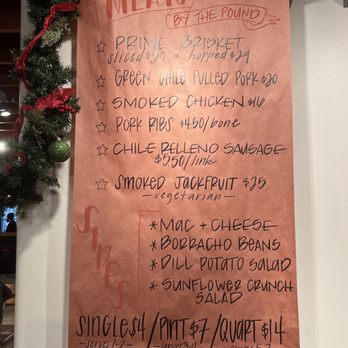 MEATS
BY THE POUND
☆ PRIME BRISKET
sliced chopped $29
☆ GREEN CHILE PULLED PORK $20
☆ SMOKED CHICKEN $16
☆ PORK RIBS $4.50/bone
☆ CHILE RELLENO SAUSAGE
$7.50/link
☆ SMOKED JACKFRUIT $25
—vegetarian—
SIDES
* MAC + CHEESE
* BORRACHO BEANS
* DILL POTATO SALAD
* SUNFLOWER CRUNCH
SALAD
SINGLE $4 / PINT $7 / QUART $14
—serves 1-2—